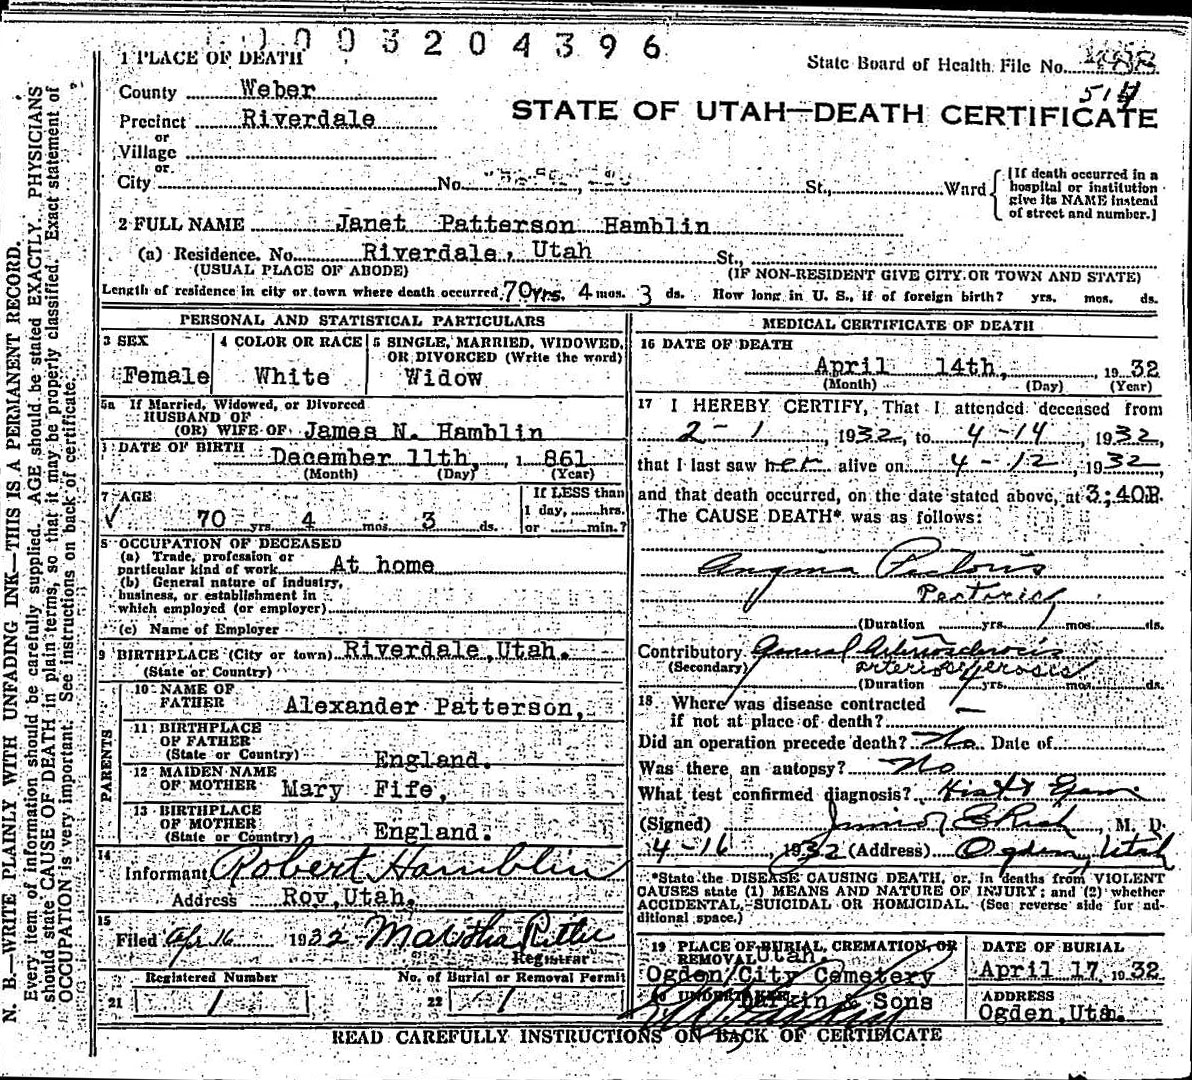 0003204396
1 PLACE OF DEATH
State Board of Health File No.
514
County Weber
STATE OF UTAH—DEATH CERTIFICATE
Precinct Riverdale
or
Village
or
City No. St., Ward
[If death occurred in a
hospital or institution
give its NAME instead
of street and number.]
2 FULL NAME Janet Patterson Hamblin
(a) Residence. No. Riverdale, Utah St.,
(USUAL PLACE OF ABODE) (IF NON-RESIDENT GIVE CITY OR TOWN AND STATE)
Length of residence in city or town where death occurred 70 yrs. 4 mos. 3 ds. How long in U. S., if of foreign birth? yrs. mos. ds.
PERSONAL AND STATISTICAL PARTICULARS
3 SEX
Female
4 COLOR OR RACE
White
5 SINGLE, MARRIED, WIDOWED,
OR DIVORCED (Write the word)
Widow
5a If Married, Widowed, or Divorced
HUSBAND OF
(OR) WIFE OF James N. Hamblin
DATE OF BIRTH December 11th, 1861
(Month) (Day) (Year)
7 AGE
✓ 70 yrs. 4 mos. 3 ds.
If LESS than
1 day, hrs.
or min.?
8 OCCUPATION OF DECEASED
(a) Trade, profession or
particular kind of work At home
(b) General nature of industry,
business, or establishment in
which employed (or employer)
(c) Name of Employer
9 BIRTHPLACE (City or town) Riverdale, Utah.
(State or Country)
PARENTS
10 NAME OF
FATHER Alexander Patterson,
11 BIRTHPLACE
OF FATHER
(State or Country) England.
12 MAIDEN NAME
OF MOTHER Mary Fife,
13 BIRTHPLACE
OF MOTHER
(State or Country) England.
14
Informant Robert Hamblin
Address Roy, Utah.
15
Filed Apr 16 1932 Martha
Registrar
Registered Number
21 1
No. of Burial or Removal Permit
22 1
MEDICAL CERTIFICATE OF DEATH
16 DATE OF DEATH
April 14th, 1932
(Month) (Day) (Year)
17 I HEREBY CERTIFY, That I attended deceased from
2-1, 1932, to 4-14, 1932,
that I last saw her alive on 4-12, 1932
and that death occurred, on the date stated above, at 3:40P.
The CAUSE DEATH* was as follows:
Angina Pectoris
Pectoris
(Duration yrs. mos. ds.
Contributory General Arteriosclerosis
(Secondary) arteriosclerosis
(Duration yrs. mos. ds.
18 Where was disease contracted
if not at place of death? —
Did an operation precede death? No Date of
Was there an autopsy? No
What test confirmed diagnosis? Hist & Exam
(Signed) Junior E Rich, M. D.
4-16, 1932 (Address) Ogden, Utah
*State the DISEASE CAUSING DEATH, or, in deaths from VIOLENT
CAUSES state (1) MEANS AND NATURE OF INJURY; and (2) whether
ACCIDENTAL, SUICIDAL OR HOMICIDAL. (See reverse side for ad-
ditional space.)
19 PLACE OF BURIAL, CREMATION, OR
REMOVAL Utah.
Ogden City Cemetery
DATE OF BURIAL
April 17 1932
20 UNDERTAKER Larkin & Sons
ADDRESS
Ogden, Utah.
READ CAREFULLY INSTRUCTIONS ON BACK OF CERTIFICATE
N. B.—WRITE PLAINLY WITH UNFADING INK—THIS IS A PERMANENT RECORD.
Every item of information should be carefully supplied. AGE should be stated EXACTLY. PHYSICIANS
should state CAUSE OF DEATH in plain terms, so that it may be properly classified. Exact statement of
OCCUPATION is very important. See instructions on back of certificate.